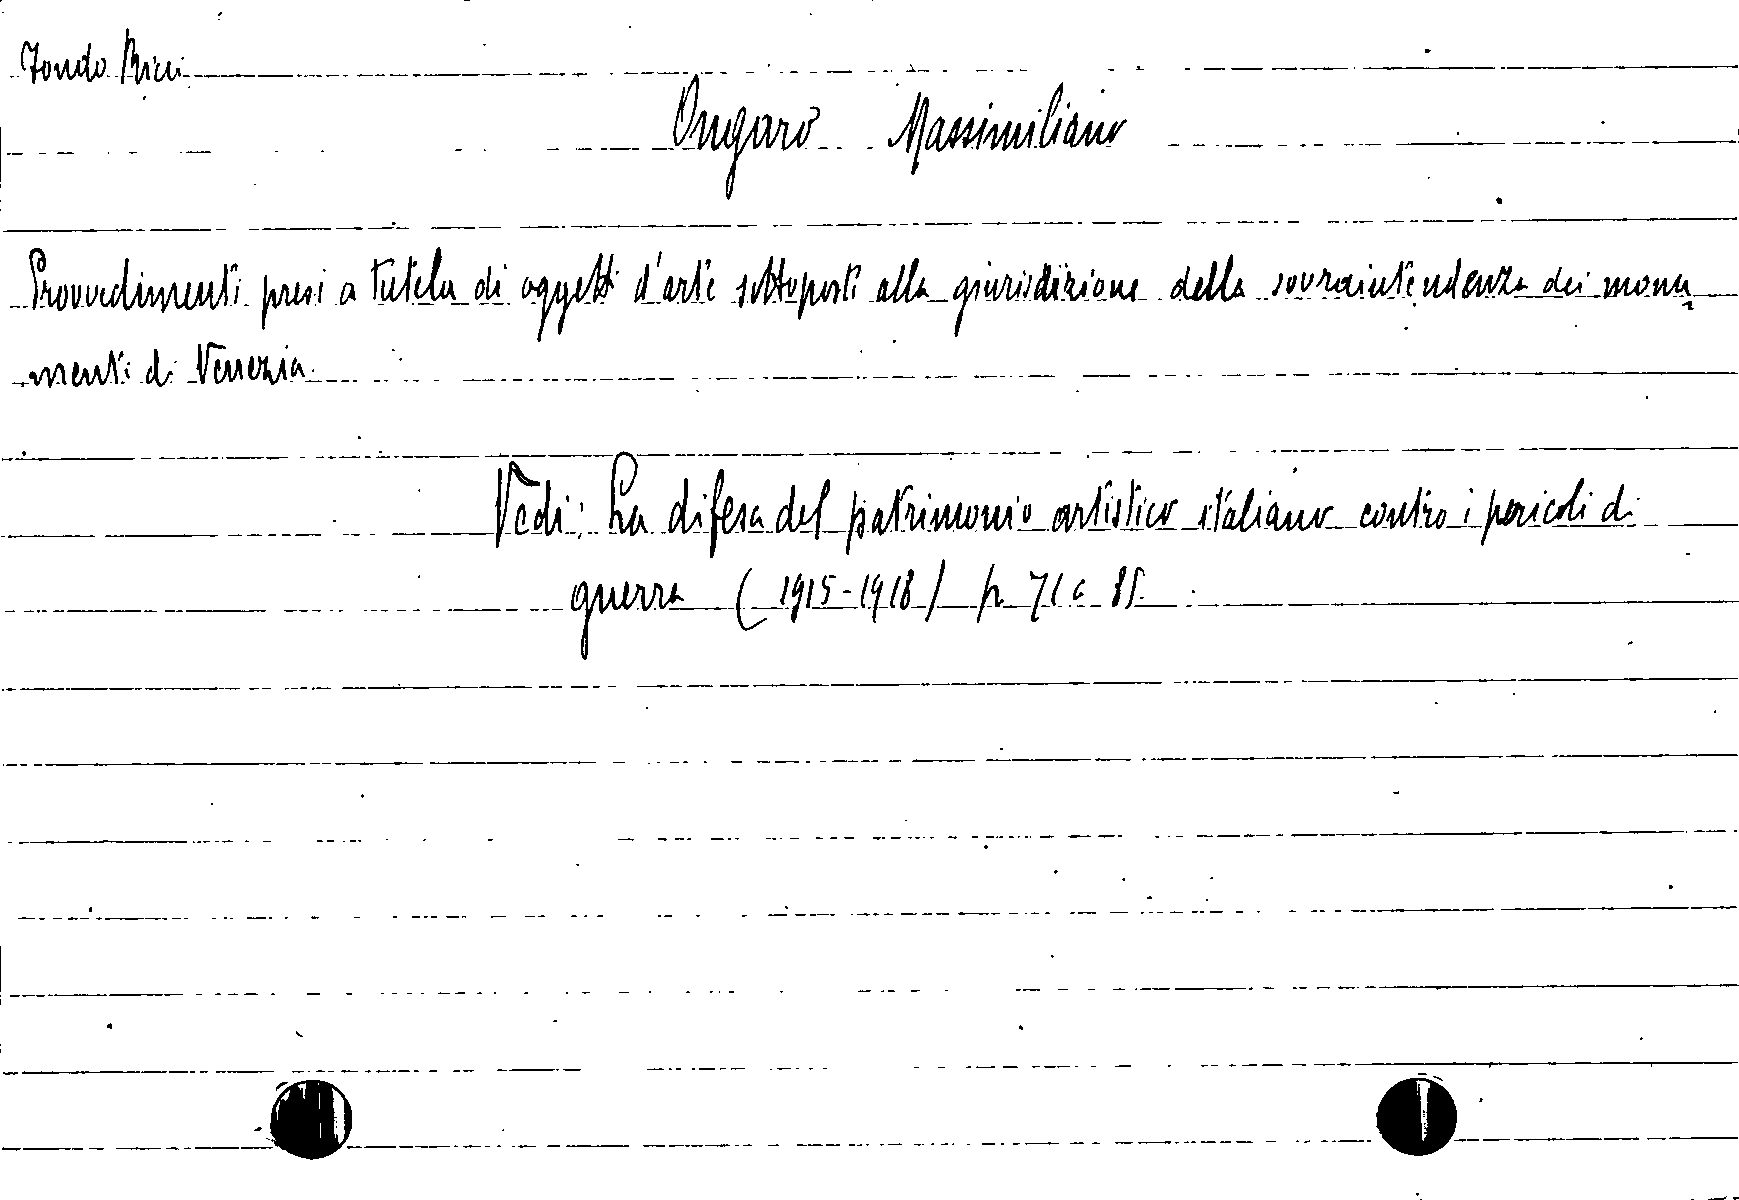 Fondo Ricci
Ongaro Massimiliano
Provvedimenti presi a tutela di oggetti d'arte sottoposti alla giurisdizione della sovraintendenza dei monu
menti di Venezia.
Vedi: La difesa del patrimonio artistico italiano contro i pericoli di
guerra (1915-1918) p. 71 a 85.